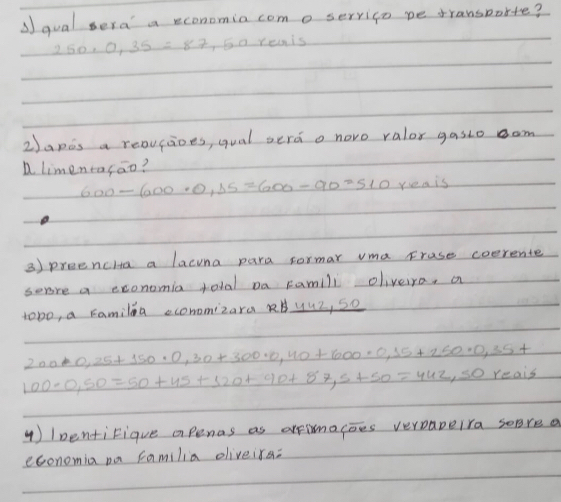 1) qual será a economia com o serviço de transporte?
250 · 0,35 = 87,50 reais
2) após a reduçãoes, qual será o novo valor gasto com
Alimentação?
600 - 600 · 0,15 = 600 - 90 = 510 reais
3) preencha a lacuna para formar uma frase coerente
sobre a economia total da famili oliveira. a
todo, a família economizara R$ 442,50
200 · 0,25 + 150 · 0,30 + 300 · 0,40 + 600 · 0,15 + 250 · 0,35 +
100 · 0,50 = 50 + 45 + 120 + 90 + 87,5 + 50 = 442,50 reais
4) Identifique apenas as afirmações verdadeira sobre a
economia da família oliveira: